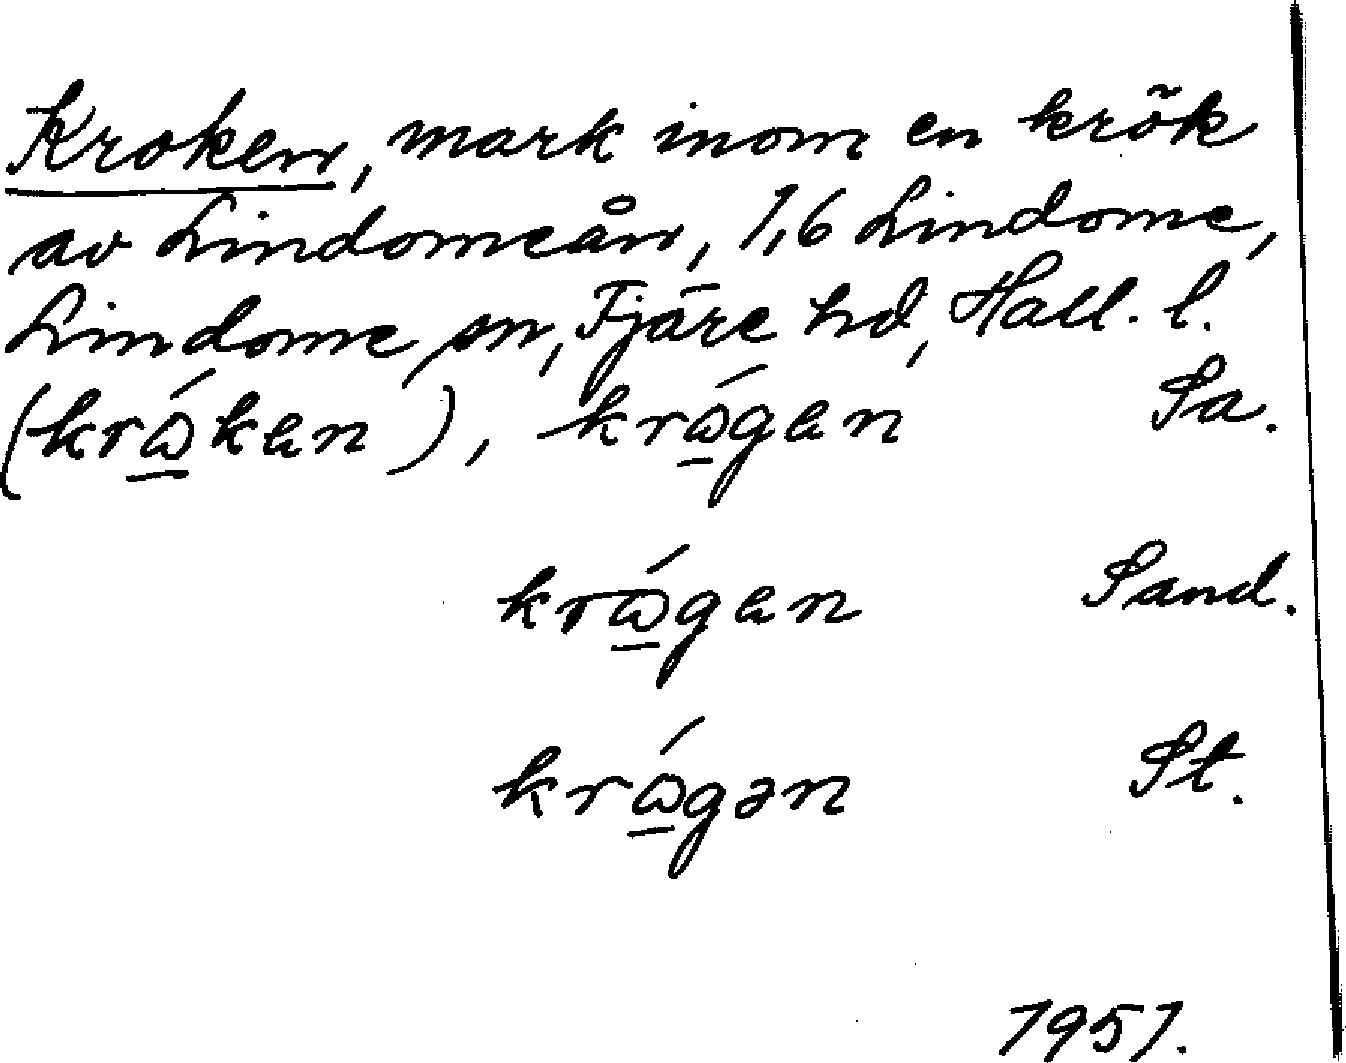 Kroken, mark inom en krök
av Lindomeån, 1,6 Lindome,
Lindome sn, Fjäre hd, Hall. l.
(krɷ̲́ken), krɷ̲́gen Sa.
krɷ̲́gen Sand.
krɷ̲́gən St.
1951.